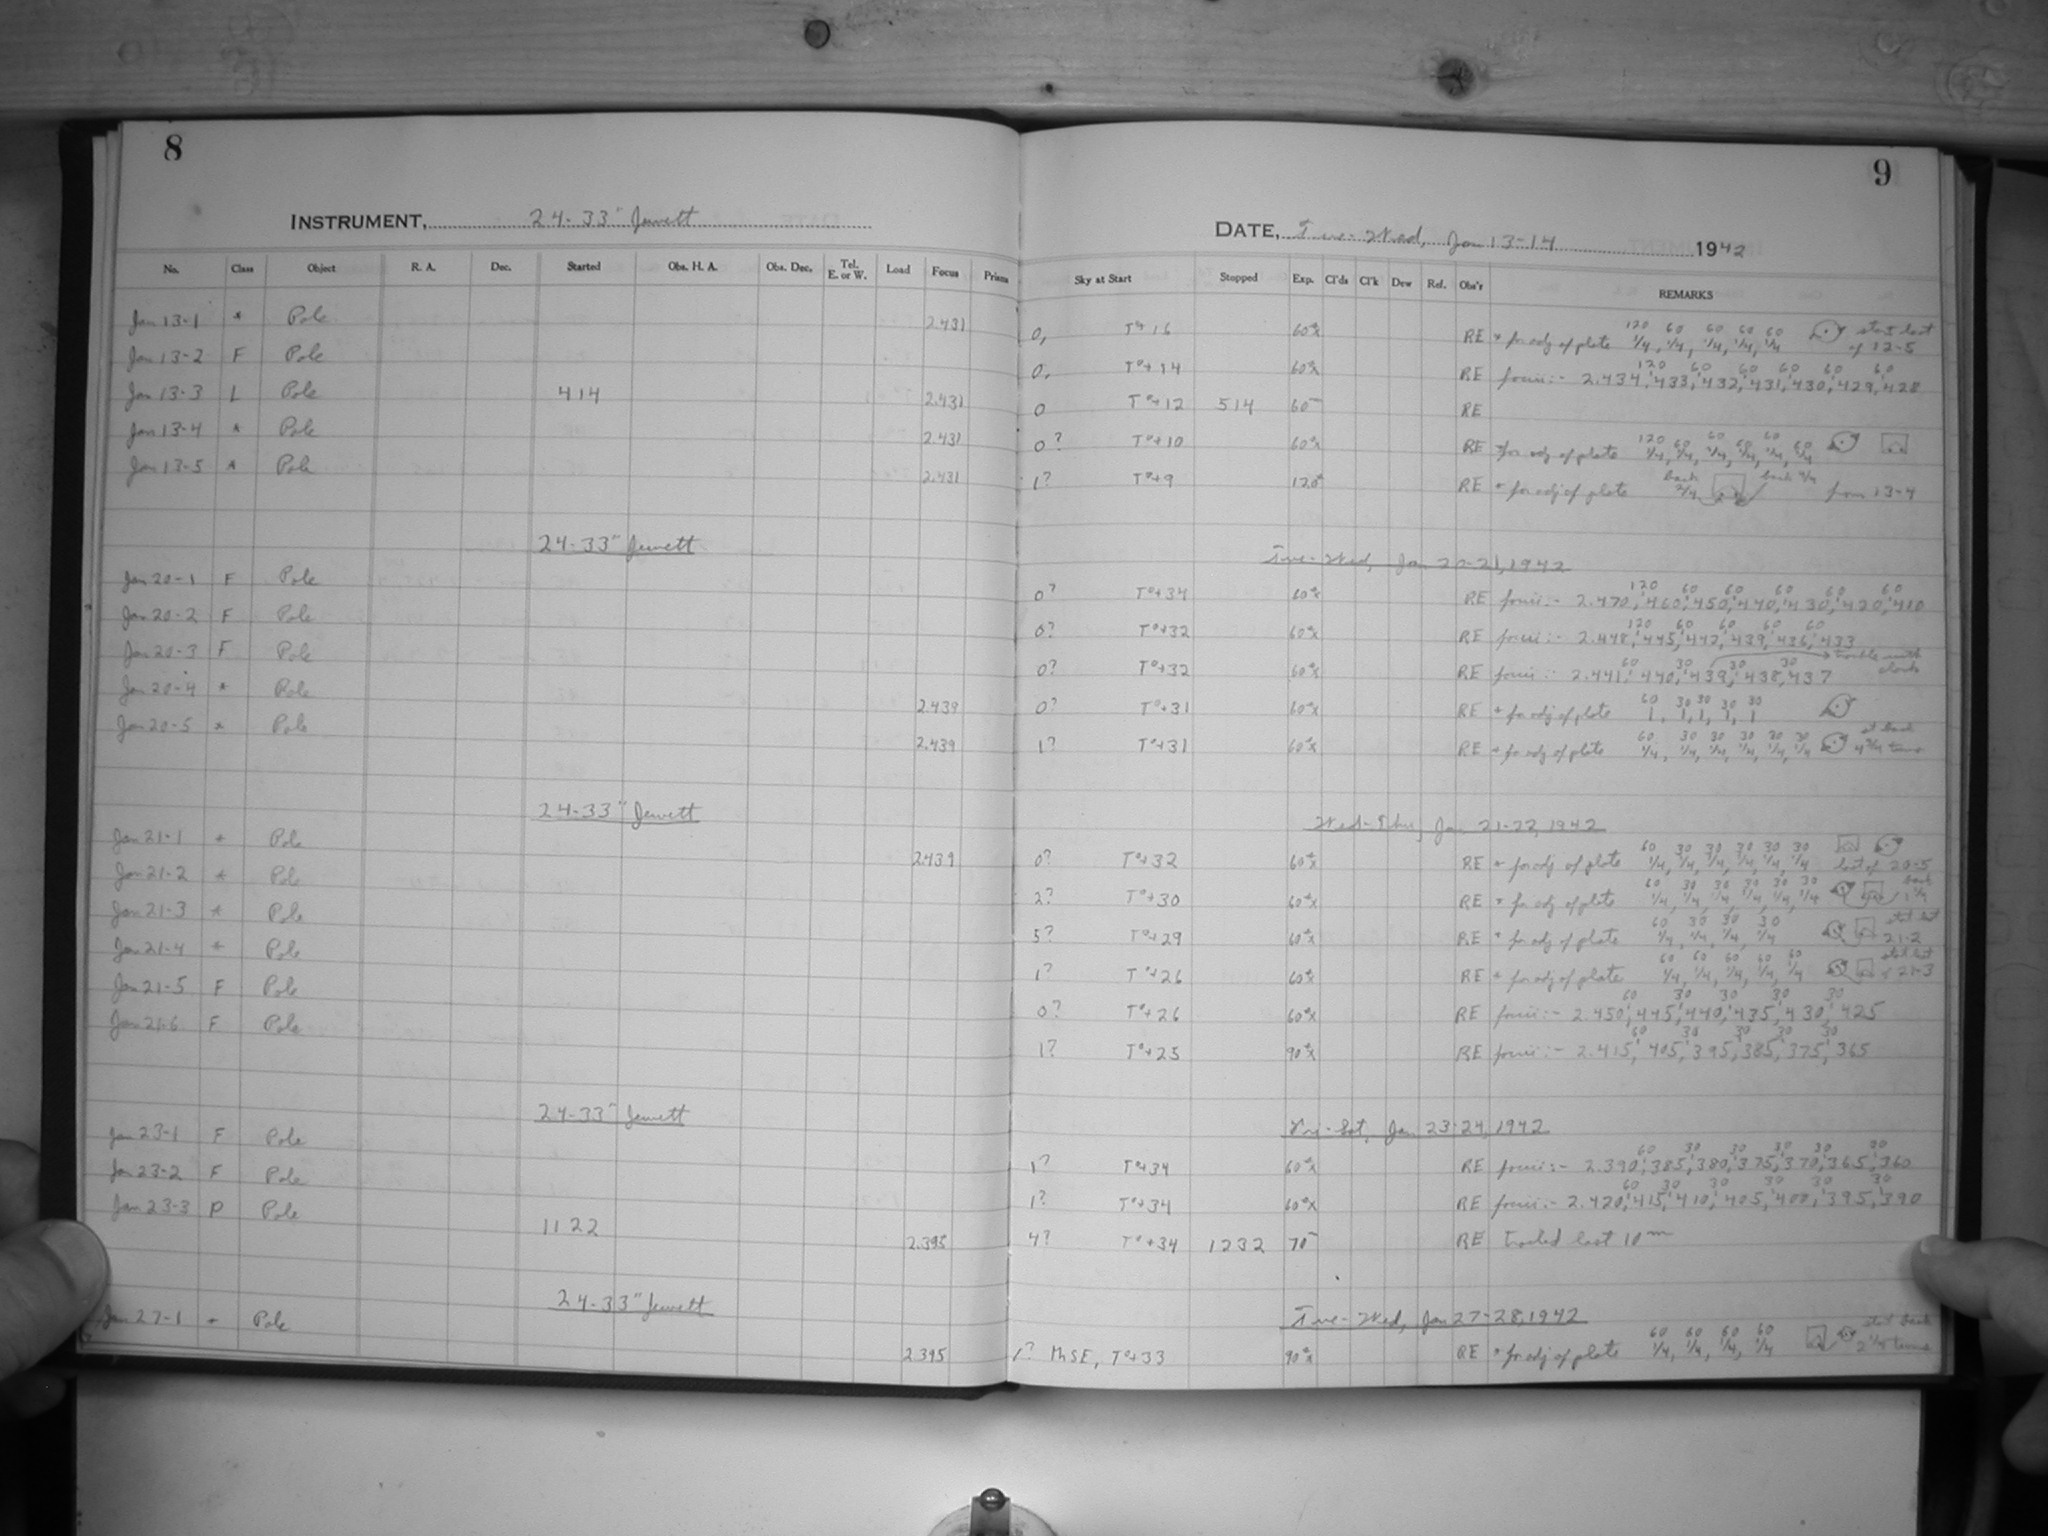 8
9
INSTRUMENT, 24-33" Jewett
DATE, Tue-Wed, Jan 13-14 1942
No. Class Object R. A. Dec. Started Obs. H. A. Obs. Dec. Tel. E. or W. Load Focus Prism Sky at Start Stopped Exp. Cl'ds Cl'k Dew Ref. Obs'r REMARKS
Jan 13-1 * Pole 2.431 0, T°+16 60sx RE * for adj of plate 120 60 60 60 60 1/4, 1/4, 1/4, 1/4, 1/4 start last of 12-5
Jan 13-2 F Pole 0, T°+14 60sx RE focus:- 120 60 60 60 60 60 2.434, 433, 432, 431, 430, 429, 428
Jan 13-3 L Pole 414 2.431 0 T°+12 514 60m RE
Jan 13-4 * Pole 2.431 0? T°+10 60sx RE * for adj of plate 120 60 60 60 60 60 1/4, 1/4, 1/4, 1/4, 1/4, 1/4
Jan 13-5 * Pole 2.431 1? T°+9 120s RE * for adj of plate back 2/4 back from 13-4
24-33" Jewett Tue-Wed, Jan 20-21, 1942
Jan 20-1 F Pole 0? T°+34 60sx RE focus:- 120 60 60 60 60 60 2.470, 460, 450, 440, 430, 420, 410
Jan 20-2 F Pole 0? T°+32 60sx RE focus:- 120 60 60 60 60 2.448, 445, 442, 439, 436, 433
Jan 20-3 F Pole 0? T°+32 60sx RE focus:- 60 30 30 30 2.441, 440, 439, 438, 437 trouble with clock
Jan 20-4 * Pole 2.439 0? T°+31 60sx RE * for adj of plate 60 30 30 30 30 1, 1, 1, 1, 1
Jan 20-5 * Pole 2.439 1? T°+31 60sx RE * for adj of plate 60 30 30 30 30 30 1/4, 1/4, 1/4, 1/4, 1/4, 1/4 st back 4 3/4 turns
24-33" Jewett Wed-Thu, Jan 21-22, 1942
Jan 21-1 * Pole 2.439 0? T°+32 60sx RE * for adj of plate 60 30 30 30 30 30 1/4, 1/4, 1/4, 1/4, 1/4, 1/4 last of 20-5
Jan 21-2 * Pole 2? T°+30 60sx RE * for adj of plate 60 30 30 30 30 30 1/4, 1/4, 1/4, 1/4, 1/4, 1/4 back 1 1/4
Jan 21-3 * Pole 5? T°+29 60sx RE * for adj of plate 60 30 30 30 1/4, 1/4, 1/4, 1/4 start last 21-2
Jan 21-4 * Pole 1? T°+26 60sx RE * for adj of plate 60 60 60 60 60 1/4, 1/4, 1/4, 1/4, 1/4 start last of 21-3
Jan 21-5 F Pole 0? T°+26 60sx RE focus:- 60 30 30 30 30 2.450, 445, 440, 435, 430, 425
Jan 21-6 F Pole 1? T°+25 90sx RE focus:- 60 30 30 30 30 2.415, 405, 395, 385, 375, 365
24-33" Jewett Fri-Sat, Jan 23-24, 1942
Jan 23-1 F Pole 1? T°+34 60sx RE focus:- 60 30 30 30 30 30 2.390, 385, 380, 375, 370, 365, 360
Jan 23-2 F Pole 1? T°+34 60sx RE focus:- 60 30 30 30 30 30 2.420, 415, 410, 405, 400, 395, 390
Jan 23-3 P Pole 1122 2.395 4? T°+34 1232 70m RE trailed last 10m
24-33" Jewett Tue-Wed, Jan 27-28, 1942
Jan 27-1 * Pole 2.395 1? MSE, T°+33 90sx RE * for adj of plate 60 60 60 60 1/4, 1/4, 1/4, 1/4 start back 2 1/4 turns